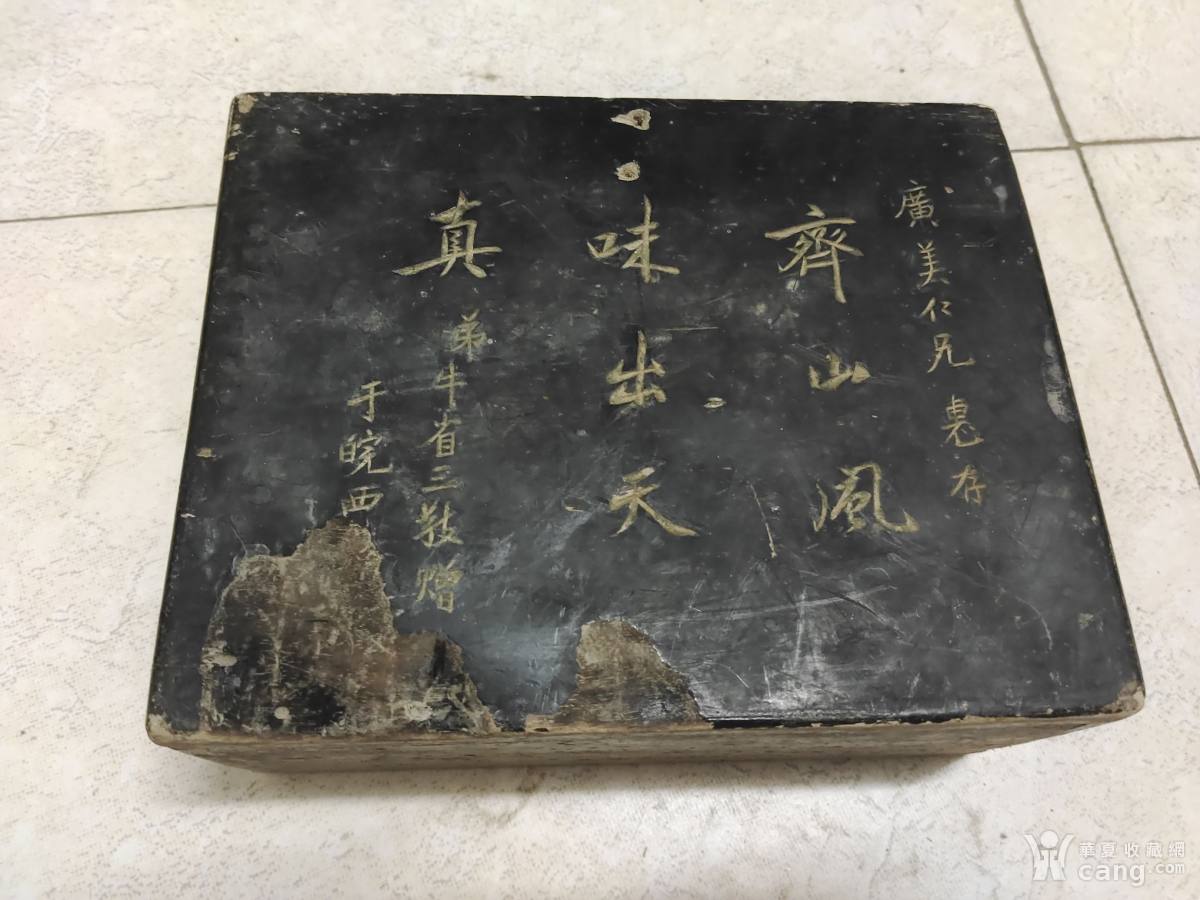 廣美仁兄惠存
齊山風
味出天
真
弟牛省三敬赠
于皖西
華夏收藏網
cang.com